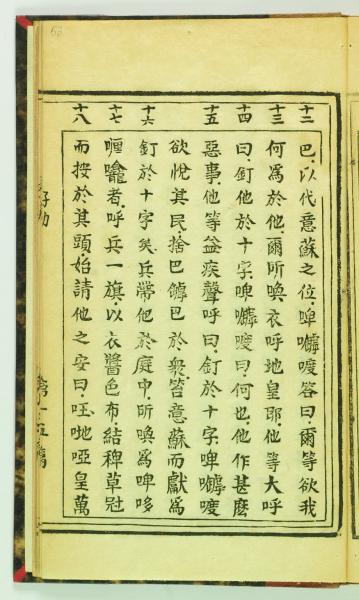 十二 巴.以代意蘇之位.啤喥答曰爾等欲我
十三 何為於他.爾所喚衣呼地皇耶他等大呼
十四 曰.釘他於十字.啤喥曰.何也.他作甚麼
十五 惡事.他等益疾聲呼曰.釘於十字.啤喥
欲悅其民.捨巴罅巴於衆.笞意蘇而獻為
十六 釘於十字矣.兵帶他於庭中.所喚為啤哆
十七 喱者.呼兵一旗.以衣醬色布結稗草冠
十八 而按於其頭始請他之安曰.哋啞皇萬
第十五篇